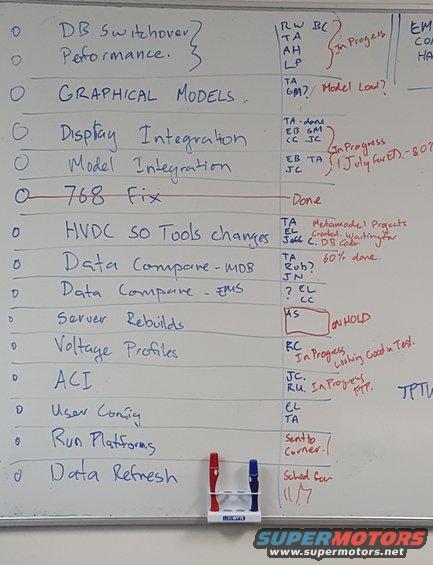 DB Switchover
Peformance.
RW BC
TA
AH
LP
In Progress
GRAPHICAL MODELS.
TA
GM? Model Load?
Display Integration
TA - done
EB GM
CC JC
Model Integration
EB TA
JC
In Progress
768 Fix
Done
HVDC SO Tools changes
TA Metamodel Projects
EL Created. Waiting for
Jeff C. DB Code
Data Compare - MDB
TA 60% done.
Rob?
JN
Data Compare - EMS
? EL
? CC
Server Rebuilds
HS
ON HOLD
Voltage Profiles
BC
In Progress
Looking Good in Test.
ACI
JC.
RU. In Progress
User Config
EL
TA
Run Platforms
Sent to
Corner.
Data Refresh
Sched for
11/7
EM
CO
HA
SUPERMOTORS
www.supermotors.net